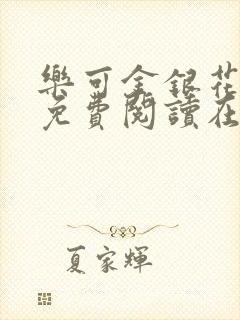 樂可金銀花
免費閱讀在
夏家輝